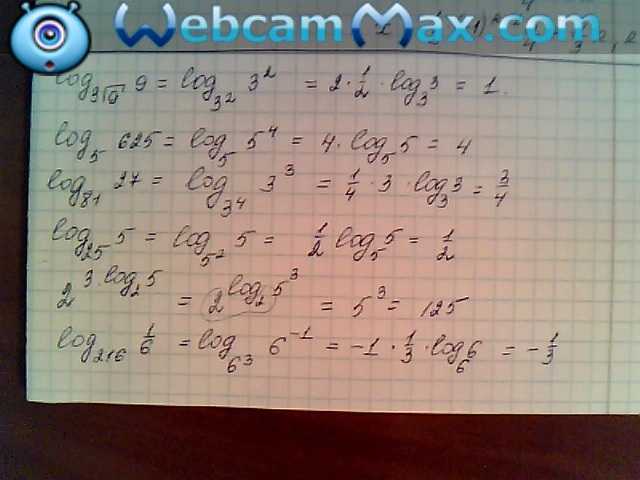 WebcamMax.com
log_{3√9} 9 = log_{3^2} 3^2 = 2 · 1/2 · log_3 3 = 1.
log_5 625 = log_5 5^4 = 4 · log_5 5 = 4
log_{81} 27 = log_{3^4} 3^3 = 1/4 · 3 · log_3 3 = 3/4
log_{25} 5 = log_{5^2} 5 = 1/2 log_5 5 = 1/2
2^{3 · log_2 5} = 2^{log_2 5^3} = 5^3 = 125
log_{216} 1/6 = log_{6^3} 6^{-1} = -1 · 1/3 · log_6 6 = -1/3